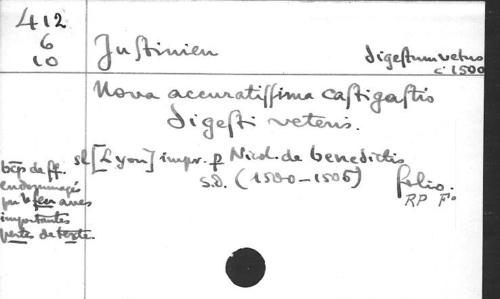 412
6
10
Justinien
digestum vetus
c 1500
Nova accuratissima castigatio
digesti veteris.
sl [Lyon] impr. p Nicol. de benedictis
s.d. (1500-1505) folio.
RP Fo.
bcp de ff.
endommagés
par le feu avec
importantes
pertes de texte.